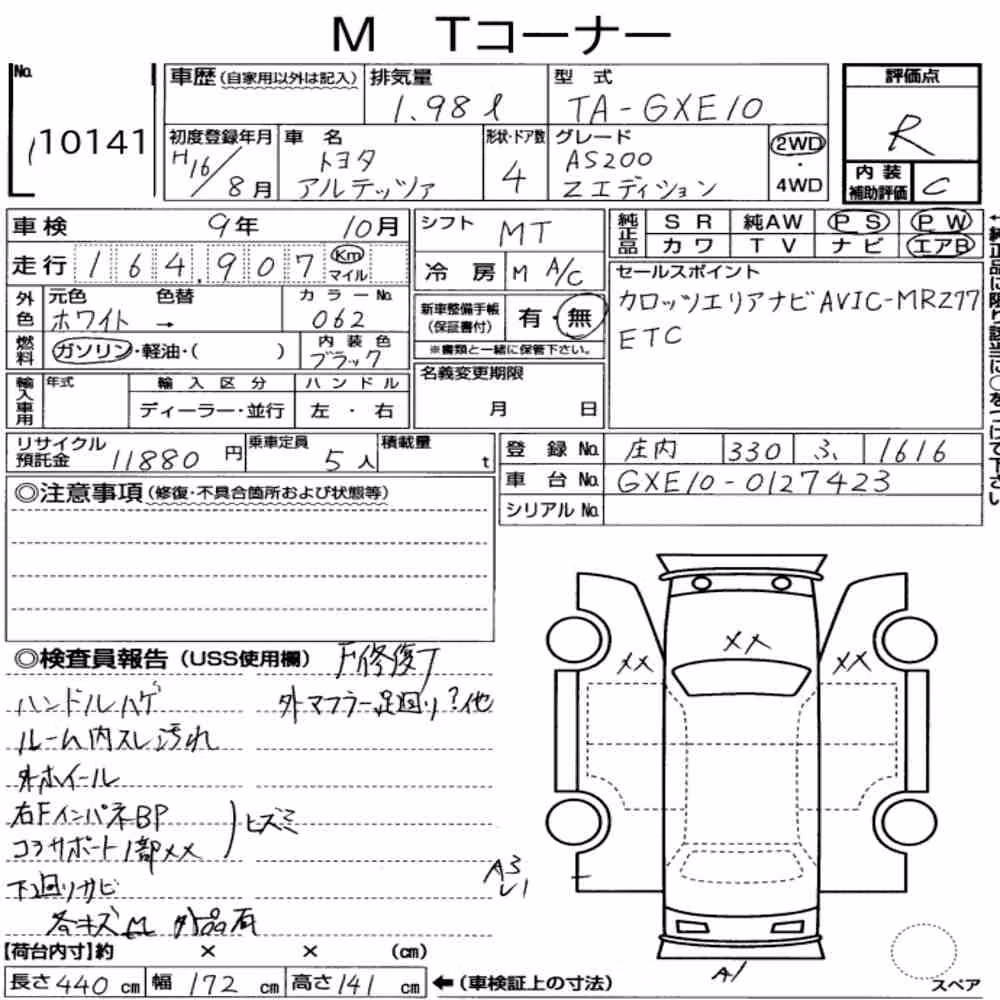 M Tコーナー
No. 10141
車歴(自家用以外は記入) 排気量 1.98ℓ 型式 TA-GXE10
初度登録年月 H16/8月 車名 トヨタ アルテッツァ 形状・ドア数 4 グレード AS200 Zエディション 2WD・4WD
評価点 R
内装補助評価 C
車検 9年 10月
走行 164,907 Km マイル
外色 元色 ホワイト 色替 → カラーNo. 062
燃料 ガソリン・軽油・( ) 内装色 ブラック
輸入車用 年式 輸入区分 ディーラー・並行 ハンドル 左・右
シフト MT
冷房 M A/C
新車整備手帳(保証書付) 有・無
※書類と一緒に保管下さい。
名義変更期限 月 日
純正品 SR 純AW PS PW
カワ TV ナビ エアB
セールスポイント
カロッツエリアナビ AVIC-MRZ77
ETC
←純正品に限り該当に○をつけて下さい
リサイクル預託金 11880円 乗車定員 5人 積載量 t
登録No. 庄内 330 ふ 1616
車台No. GXE10-0127423
シリアルNo.
◎注意事項(修復・不具合箇所および状態等)
◎検査員報告(USS使用欄) F修復了
ハンドルハゲ 外マフラー足回り?他
ルーム内スレ汚れ
外ホイール
右FインパネBP
コアサポート1部XX )ヒズミ
下回りサビ
各キズ凹 外品有
XX
XX XX
A3
レ1
A1
スペア
【荷台内寸】約 × × (cm)
長さ 440 cm 幅 172 cm 高さ 141 cm ←(車検証上の寸法)